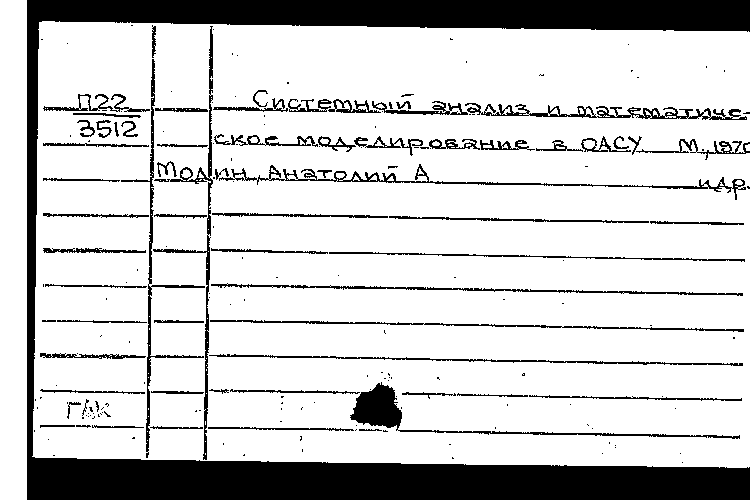 П22 Системный анализ и математиче-
3512 ское моделирование в ОАСУ М., 1970
Модин, Анатолий А и др.
ГАК